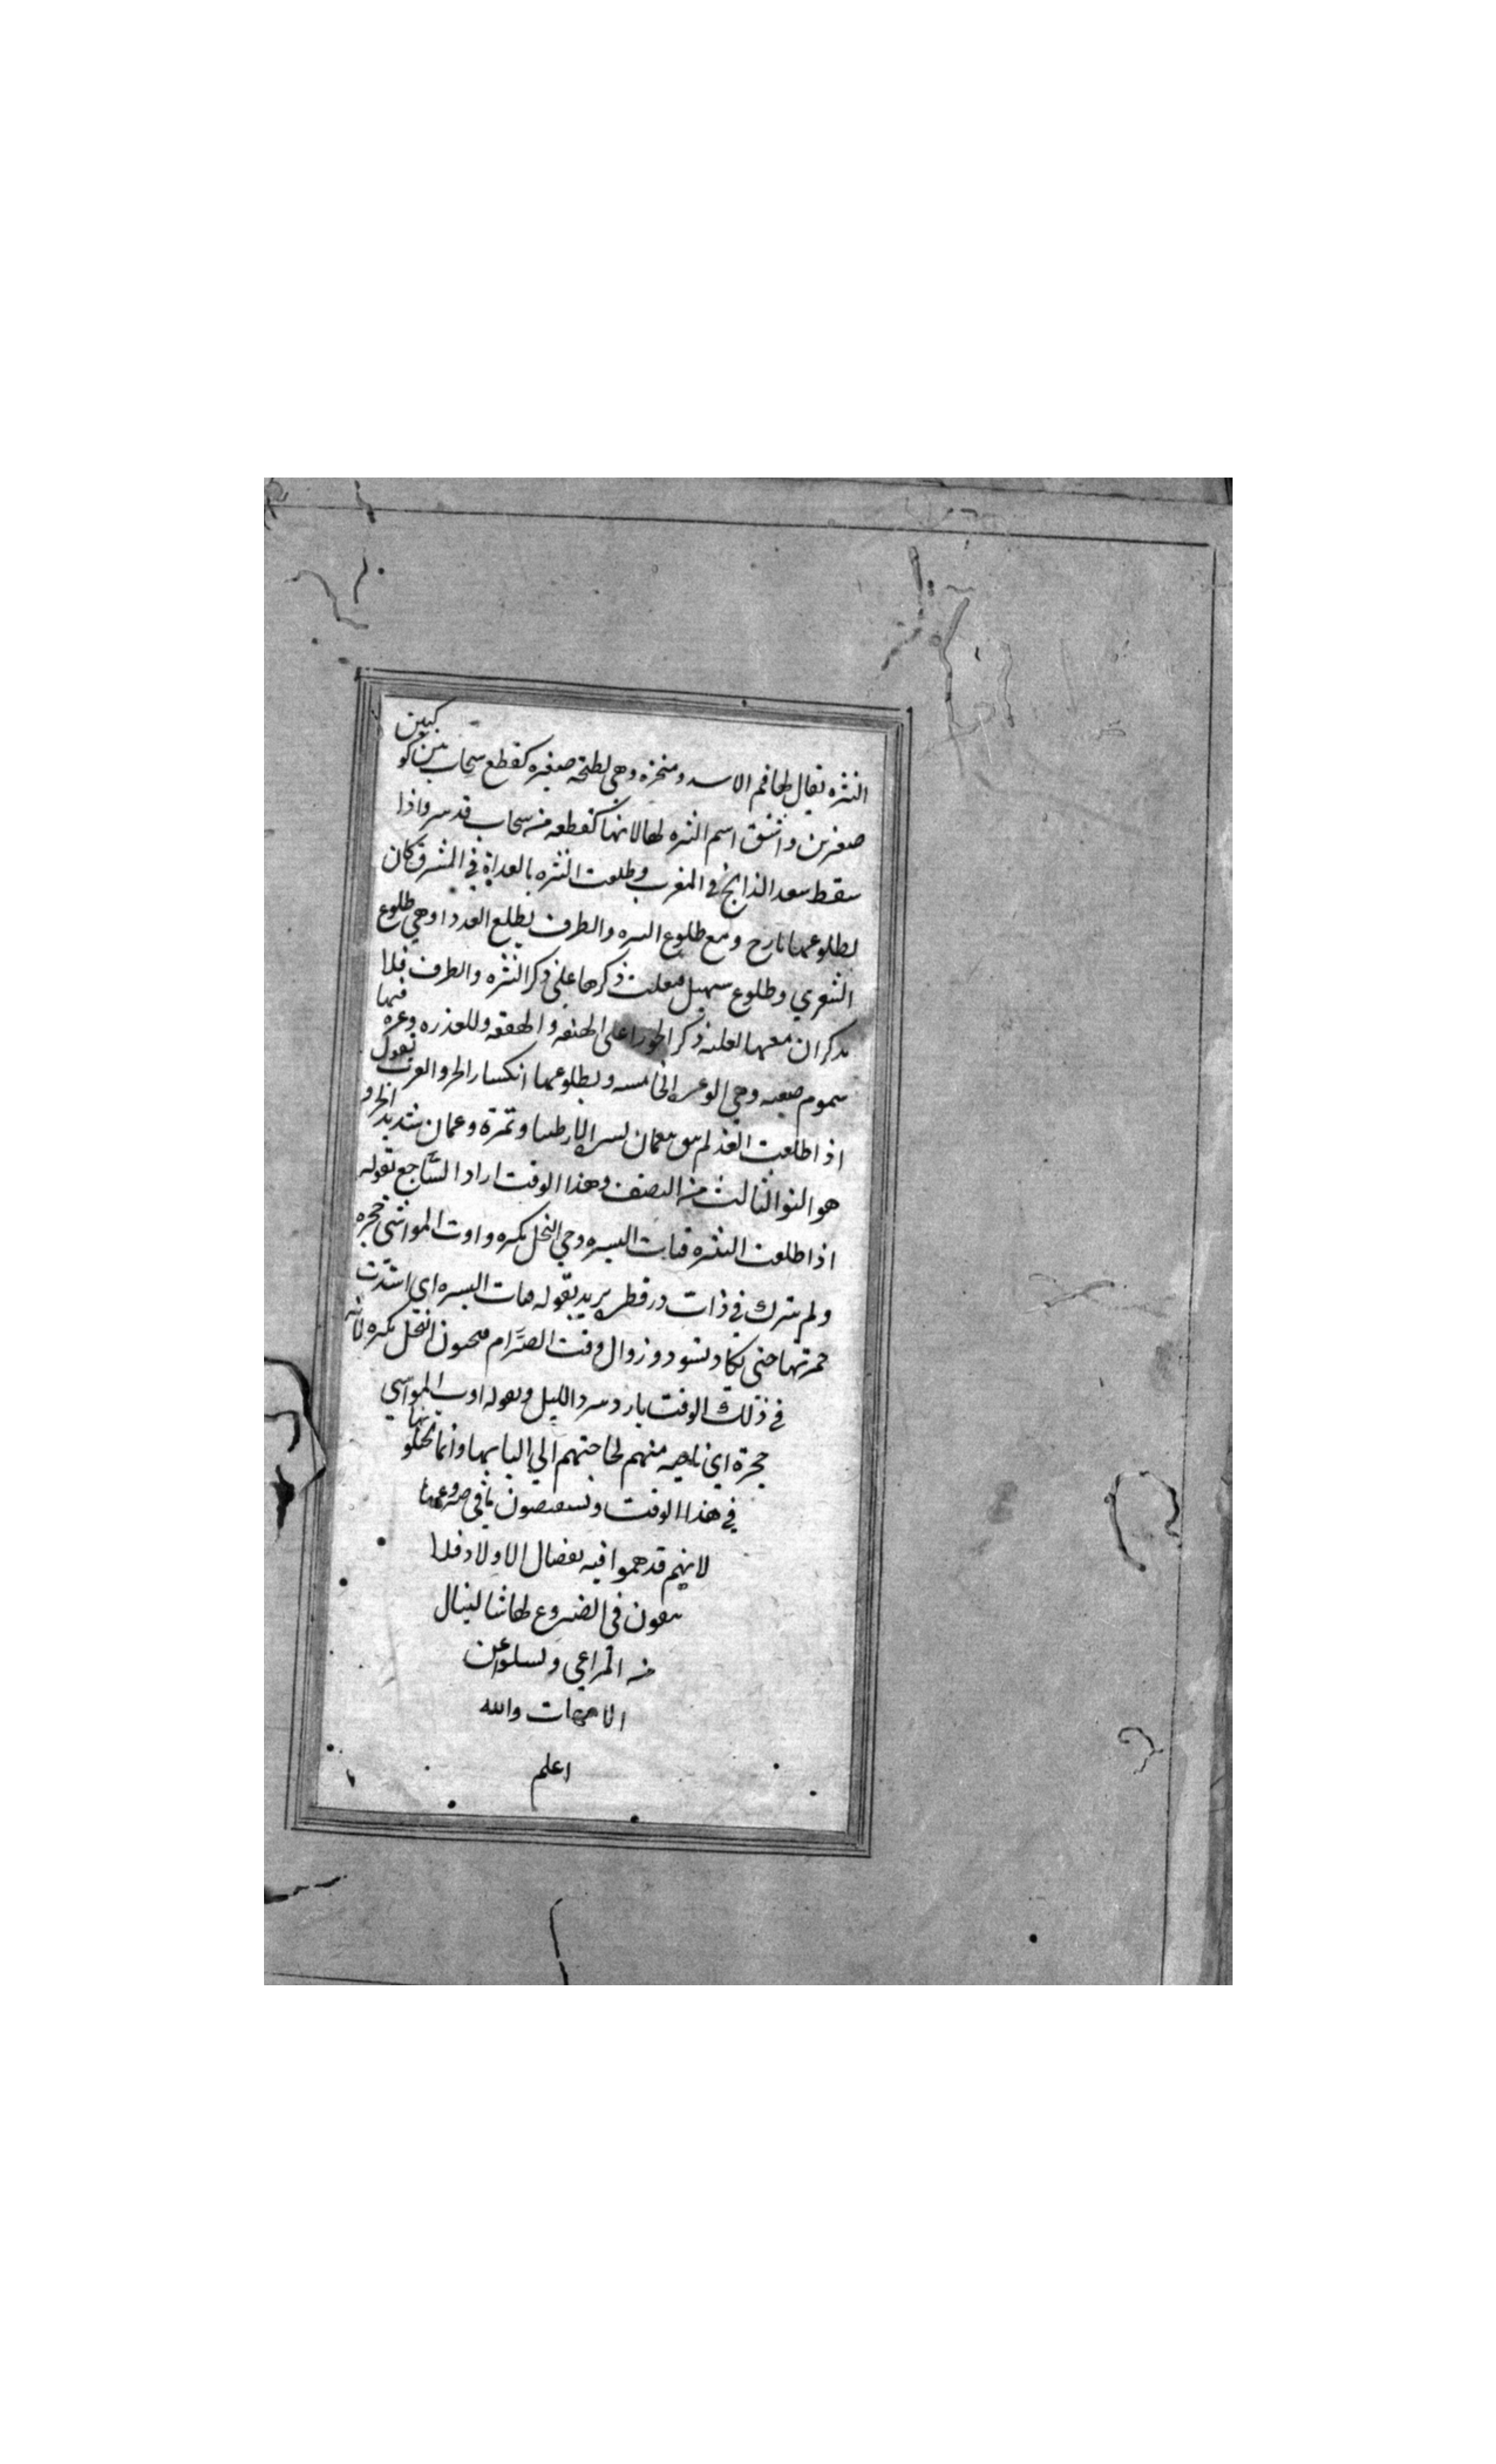 النثره يقال لها فم الاسد ومنخره وهي لطخه صغيره كقطع سحاب بين كوكبين
صغرين واشتق اسم النثره لها لانها كقطعه من سحاب قد سر واذا
سقط سعد الذابح في المغرب وطلعت النثره بالغداة في المشرق كان
لطلوعهما بارح ومع طلوع النثره والطرف يطلع العذرا وهي طلوع
الشعري وطلوع سهيل فغلبت ذكرها علي ذكر النثره والطرف فلا
يذكران معها لغلبه ذكر الجوزا علي الهنعه والهقعه وللعذره وعره فيها
سموم صعبه وهي الوعره الخامسه ولطلوعهما انكسار الحر والعرب تقول
اذا طلعت العذر لم يبق بعمان بسر الا رطبا وتمرة وعمان شديد الحر و
هو النو الثالث من الصيف وهذا الوقت اراد الساجع بقوله
اذا طلعت النثره قنات البسره وجي النخل بكره واوت المواشي حجره
ولم يترك في ذات در قطر يريد بقوله قنات البسره اي اشتدت
حمرتها حتي تكاد تسود وزوال وقت الصرام فيجنون النخل بكره لانه
في ذلك الوقت بارد ببرد الليل وبقوله اوت المواشي
حجرة اي ناحيه منهم لحاجتهم الي البانها وانما يحلبونها
في هذا الوقت ويستقصون ما في ضروعها
لانهم قد هموا فيه بفصال الاولاد فلا
يبقون في الضروع لها شا لينال
من المراعي وتسلوا عن
الامهات والله
اعلم